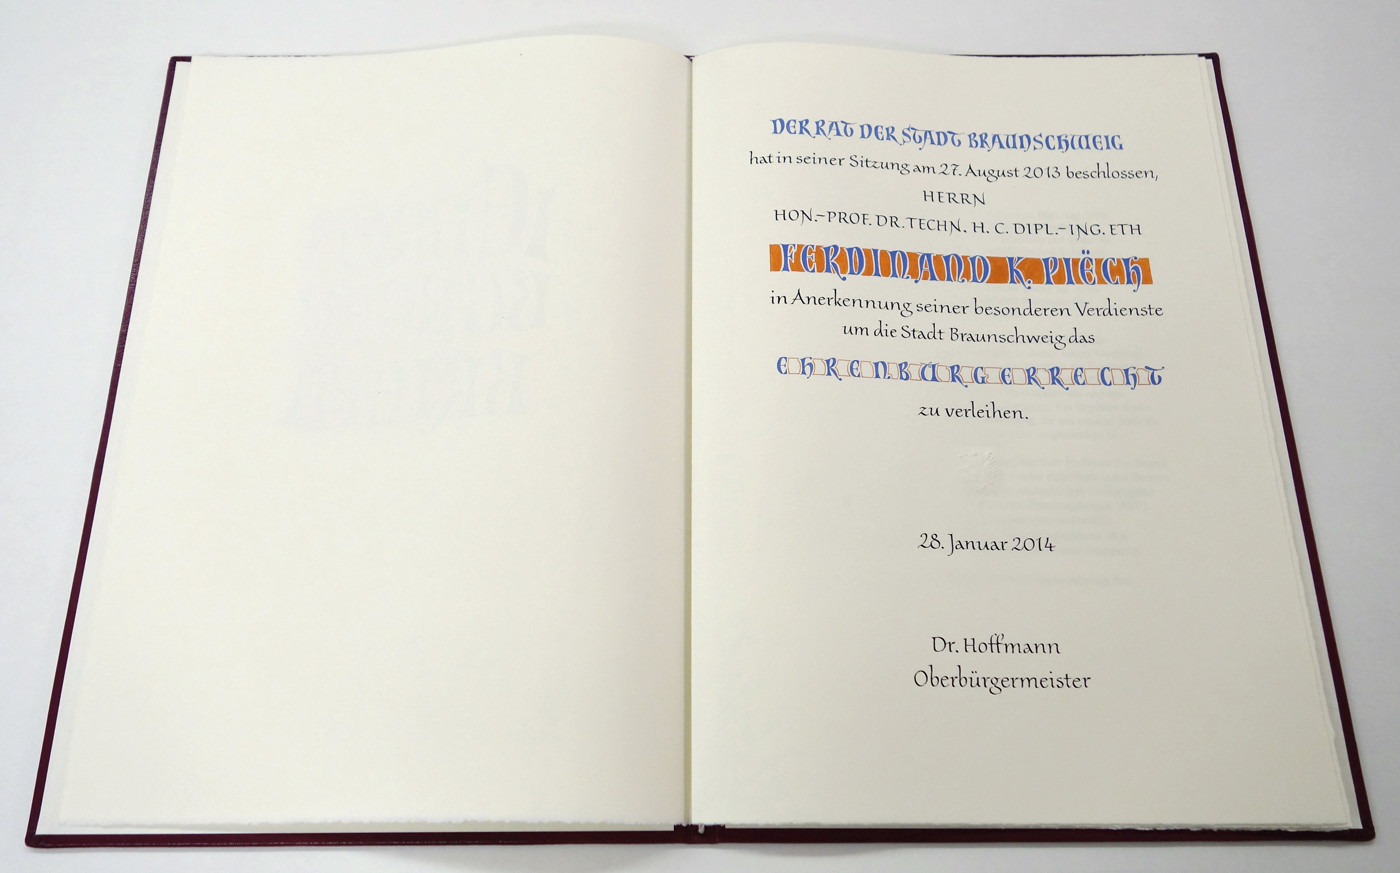 DER RAT DER STADT BRAUNSCHWEIG
hat in seiner Sitzung am 27. August 2013 beschlossen,
HERRN
HON.-PROF. DR. TECHN. H. C. DIPL.-ING. ETH
FERDINAND K. PIËCH
in Anerkennung seiner besonderen Verdienste
um die Stadt Braunschweig das
EHRENBÜRGERRECHT
zu verleihen.
28. Januar 2014
Dr. Hoffmann
Oberbürgermeister